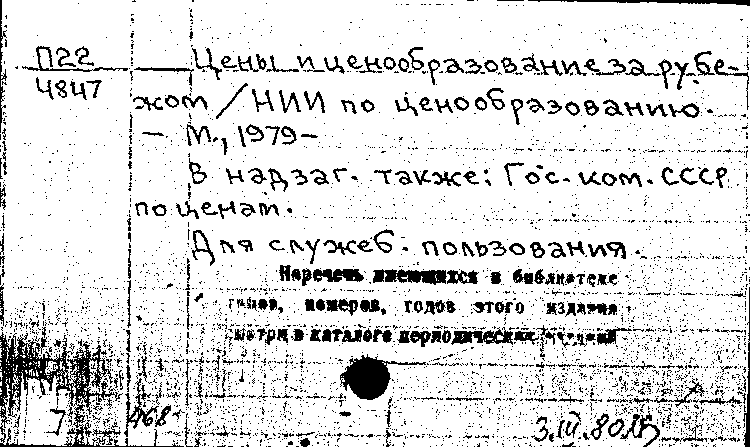 П22
4847
Цены и ценообразование за рубе-
жом / НИИ по ценообразованию.
— М., 1979 –
В надзаг. также: Гос. ком. СССР
по ценам.
Для служеб. пользования.
Перечень имеющихся в библиотеке
томов, номеров, годов этого издания
смотри в каталоге периодических изданий
7
468